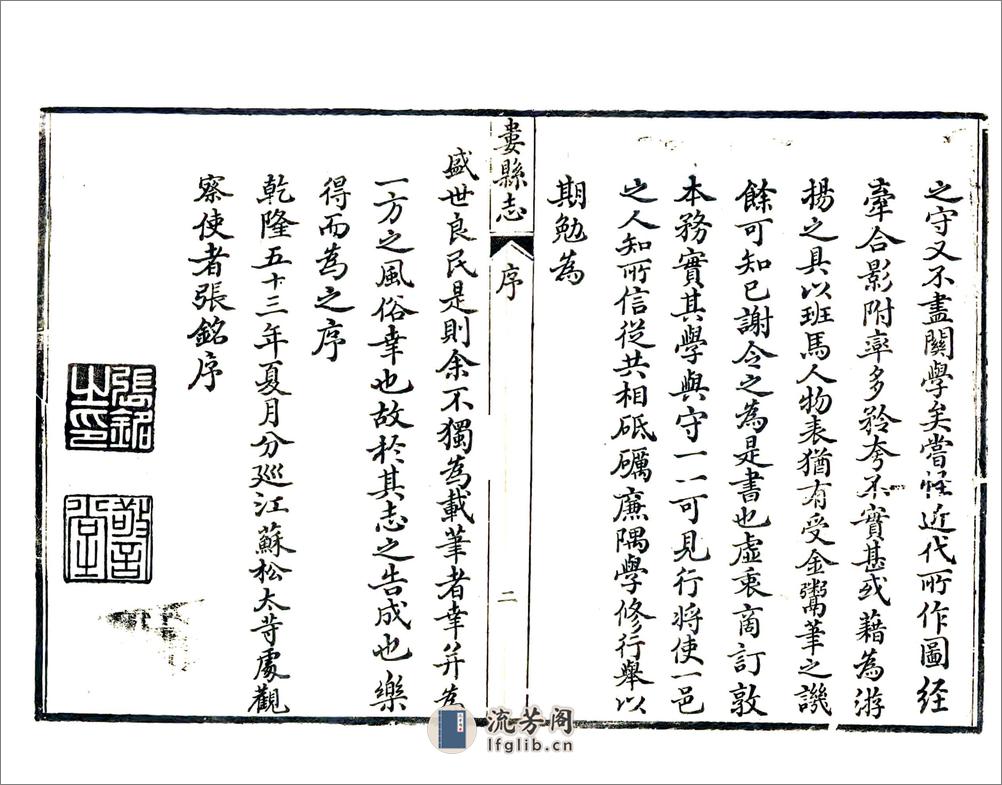 之守又不盡關學矣嘗怪近代所作圖經
牽合影附率多矜夸不實甚或藉為游
揚之具以班馬人物表猶有受金鬻筆之譏
餘可知已謝令之為是書也虛衷商訂敦
本務實其學與守一一可見行將使一邑
之人知所信從共相砥礪廉隅學修行舉以
期勉為
婁縣志
序
二
盛世良民是則余不獨為載筆者幸并為
一方之風俗幸也故於其志之告成也樂
得而為之序
乾隆五十三年夏月分廵江蘇松太等處觀
察使者張銘序
張銘之印
敬言堂
流芳阁
lfglib.cn